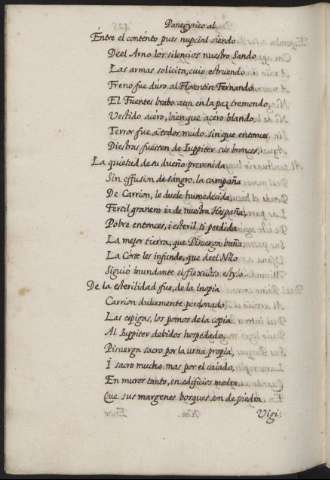 Panegyrico al
Entre el contento pues nupcial siendo
Deel Arno los silencios nuestro Sando
Las armas solicita, cuio estruendo
Freno fue duro al Florentin Fernando
El Fuentes brabo aun en la paz tremendo
Vestido acero, bien que acero blando,
Terror fue a todos mudo, sin que entonces
Diestras fuesen de Iuppiter sus bronces.
La quietud de su dueño prevenida
Sin effusion de sangre, la campaña
De Carrion, le duele humedecida
Fertil granero ia de nuestra España,
Pobre entonces, i esteril, si perdida
La mejor tierra, que Pisuerga baña
La Corte les infunde, que deel Nilo
Siguiò inundante el fructuoso estylo.
De la esterilidad fue, de la inopia
Carrion dulcemente perdonado
Las espigas, los pomos de la copia
Al Iuppiter debidos hospedado,
Pisuerga sacro por la urna propia,
I sacro mucho mas por el caiado,
En muros tanto, en edificios medra
Que sus margenes bosques son de piedra.
Vigi: